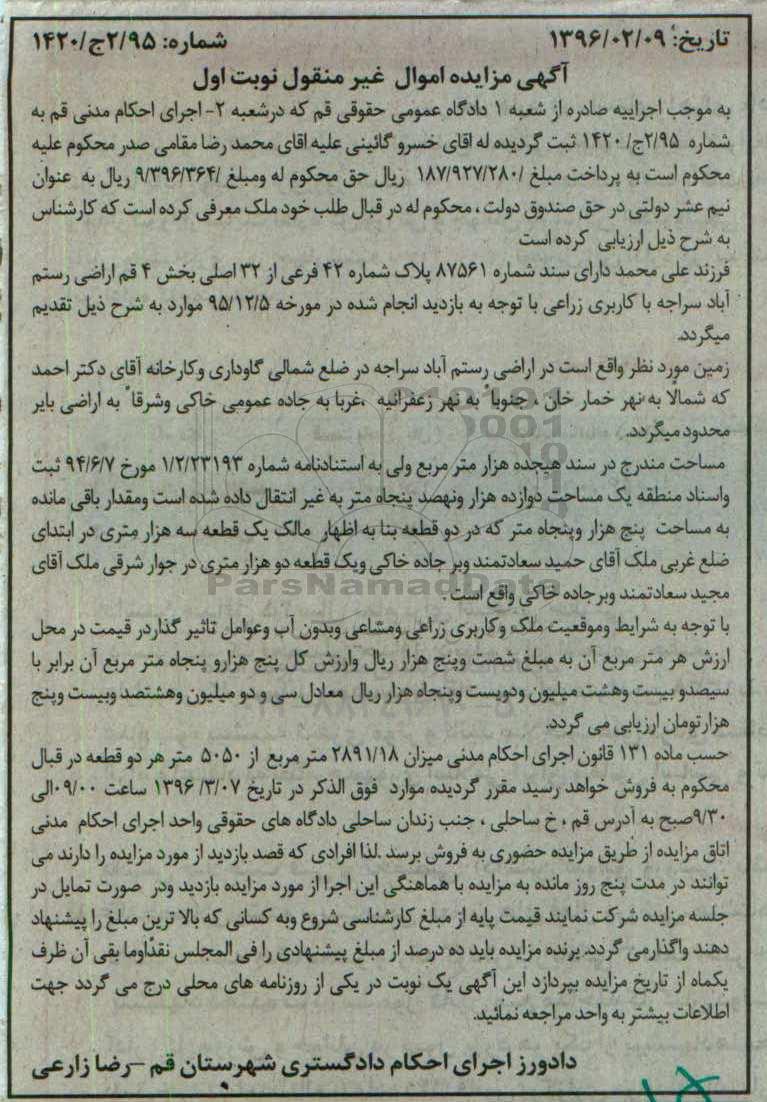 تاریخ: ۱۳۹۶/۰۲/۰۹
شماره: ۲/۹۵ج/۱۴۲۰
آگهی مزایده اموال غیر منقول نوبت اول
به موجب اجراییه صادره از شعبه ۱ دادگاه عمومی حقوقی قم که درشعبه ۲- اجرای احکام مدنی قم به
شماره ۲/۹۵ج/۱۴۲۰ ثبت گردیده له اقای خسرو گائینی علیه اقای محمد رضا مقامی صدر محکوم علیه
محکوم است به پرداخت مبلغ /۱۸۷/۹۲۷/۲۸۰ ریال حق محکوم له ومبلغ /۹/۳۹۶/۳۶۴ ریال به عنوان
نیم عشر دولتی در حق صندوق دولت ، محکوم له در قبال طلب خود ملک معرفی کرده است که کارشناس
به شرح ذیل ارزیابی کرده است
فرزند علی محمد دارای سند شماره ۸۷۵۶۱ پلاک شماره ۴۲ فرعی از ۳۲ اصلی بخش ۴ قم اراضی رستم
آباد سراجه با کاربری زراعی با توجه به بازدید انجام شده در مورخه ۹۵/۱۲/۵ موارد به شرح ذیل تقدیم
میگردد.
زمین مورد نظر واقع است در اراضی رستم آباد سراجه در ضلع شمالی گاوداری وکارخانه آقای دکتر احمد
که شمالًا به نهر خمار خان ، جنوباً به نهر زعفرانیه ،غربا به جاده عمومی خاکی وشرقاً به اراضی بایر
محدود میگردد.
مساحت مندرج در سند هیجده هزار متر مربع ولی به استنادنامه شماره ۱/۲/۲۳۱۹۳ مورخ ۹۴/۶/۷ ثبت
واسناد منطقه یک مساحت دوازده هزار ونهصد پنجاه متر به غیر انتقال داده شده است ومقدار باقی مانده
به مساحت پنج هزار وپنجاه متر که در دو قطعه بنا به اظهار مالک یک قطعه سه هزار متری در ابتدای
ضلع غربی ملک آقای حمید سعادتمند وبر جاده خاکی ویک قطعه دو هزار متری در جوار شرقی ملک آقای
مجید سعادتمند وبرجاده خاکی واقع است .
ParsNamadData
با توجه به شرایط وموقعیت ملک وکاربری زراعی ومشاعی وبدون آب وعوامل تاثیر گذاردر قیمت در محل
ارزش هر متر مربع آن به مبلغ شصت وپنج هزار ریال وارزش کل پنج هزارو پنجاه متر مربع آن برابر با
سیصدو بیست وهشت میلیون ودویست وپنجاه هزار ریال معادل سی و دو میلیون وهشتصد وبیست وپنج
هزارتومان ارزیابی می گردد.
حسب ماده ۱۳۱ قانون اجرای احکام مدنی میزان ۲۸۹۱/۱۸ متر مربع از ۵۰۵۰ متر هر دو قطعه در قبال
محکوم به فروش خواهد رسید مقرر گردیده موارد فوق الذکر در تاریخ ۱۳۹۶/۳/۰۷ ساعت ۰۹/۰۰الی
۹/۳۰صبح به آدرس قم ، خ ساحلی ، جنب زندان ساحلی دادگاه های حقوقی واحد اجرای احکام مدنی
اتاق مزایده از طریق مزایده حضوری به فروش برسد .لذا افرادی که قصد بازدید از مورد مزایده را دارند می
توانند در مدت پنج روز مانده به مزایده با هماهنگی این اجرا از مورد مزایده بازدید ودر صورت تمایل در
جلسه مزایده شرکت نمایند قیمت پایه از مبلغ کارشناسی شروع وبه کسانی که بالا ترین مبلغ را پیشنهاد
دهند واگذارمی گردد. برنده مزایده باید ده درصد از مبلغ پیشنهادی را فی المجلس نقدًاوما بقی آن ظرف
یکماه از تاریخ مزایده بپردازد این آگهی یک نوبت در یکی از روزنامه های محلی درج می گردد جهت
اطلاعات بیشتر به واحد مراجعه نمائید.
دادورز اجرای احکام دادگستری شهرستان قم –رضا زارعی